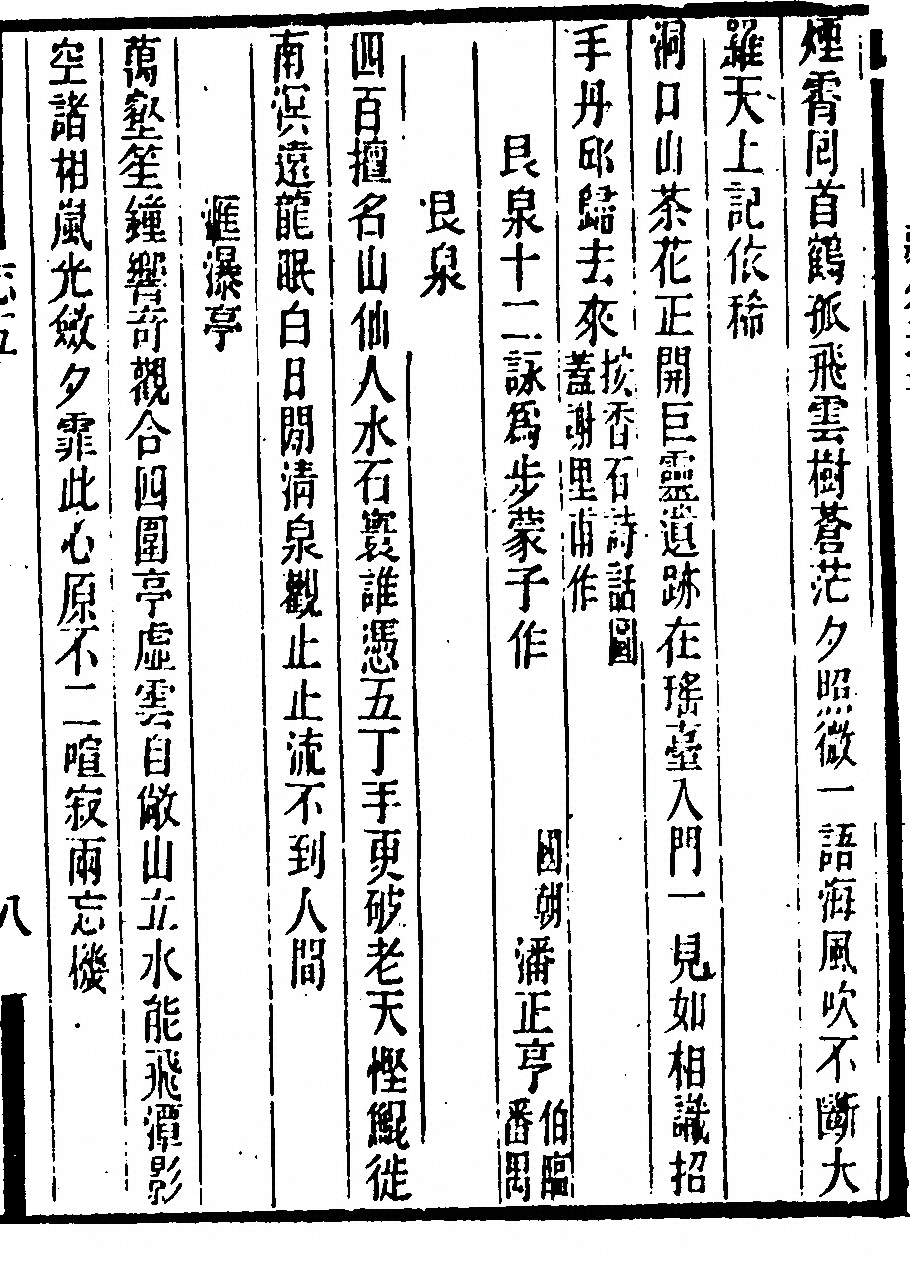 煙霄囘首鶴孤飛雲樹蒼茫夕照微一語海風吹不斷大
羅天上記依稀
洞口山茶花正開巨靈遺跡在瑤臺入門一見如相識招
手丹邱歸去來按香石詩話圖蓋謝里甫作
艮泉十二詠為步蒙子作 國朝潘正亨伯臨番禺
艮泉
四百擅名山仙人水石寰誰憑五丁手更破老天慳鯤徙
南溟遠龍眠白日閒清泉觀止止流不到人間
滙瀑亭
萬壑笙鐘響奇觀合四圍亭虛雲自敞山立水能飛潭影
空諸相嵐光斂夕霏此心原不二喧寂兩忘機
志五
八